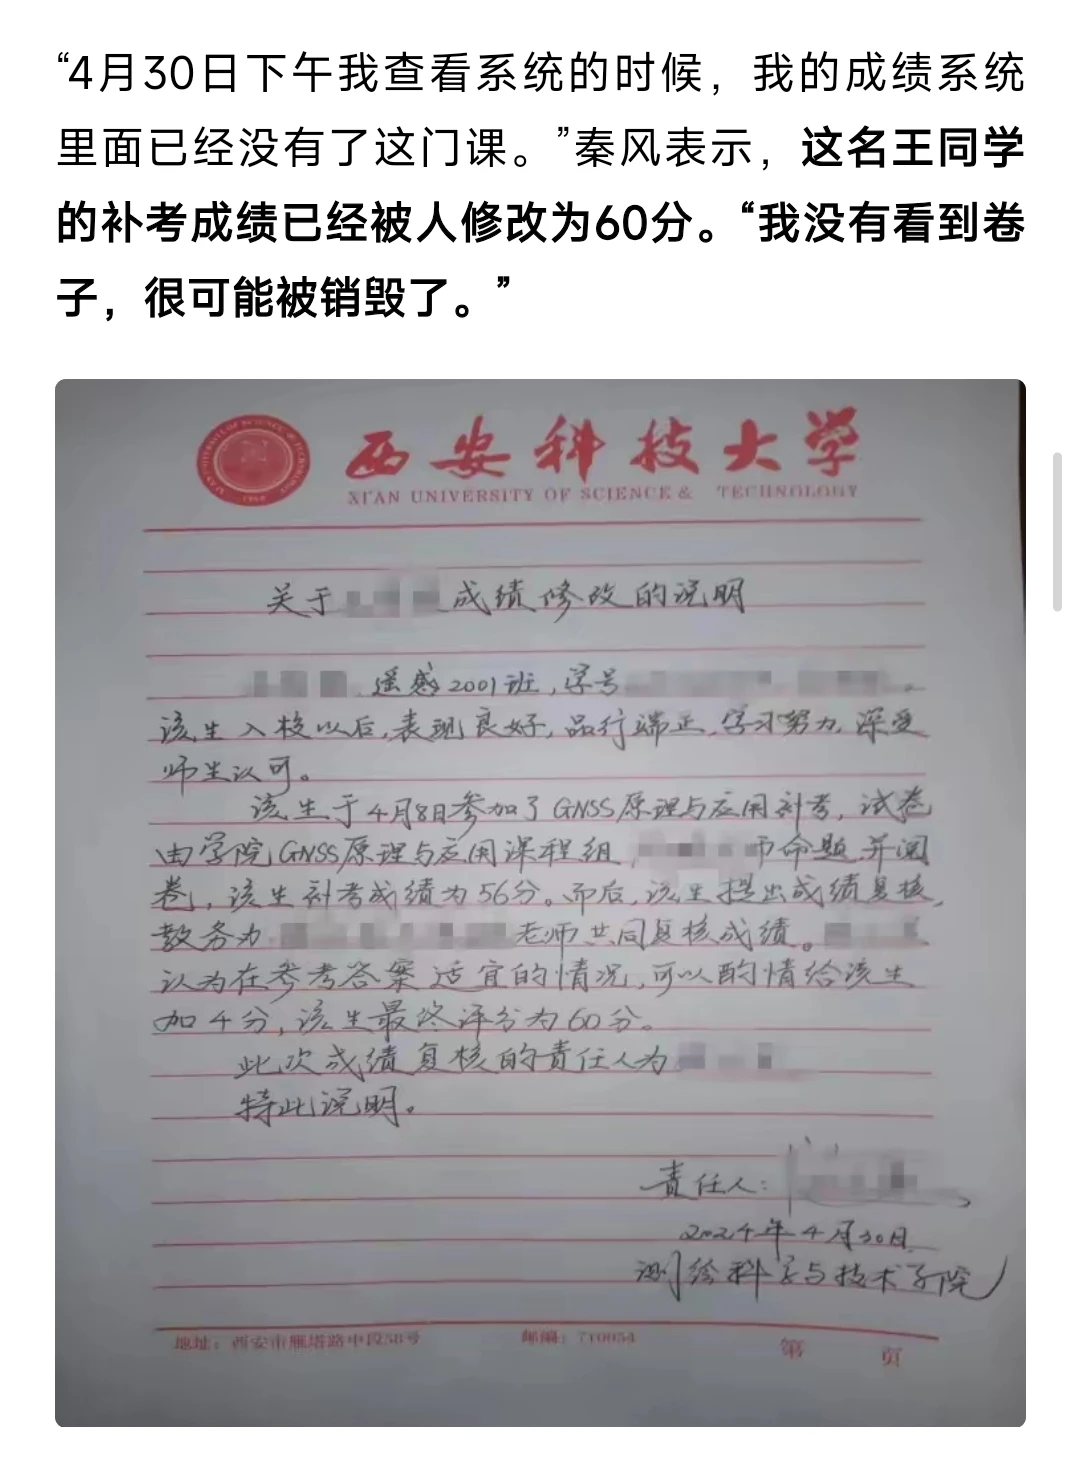 “4月30日下午我查看系统的时候，我的成绩系统
里面已经没有了这门课。”秦风表示，这名王同学
的补考成绩已经被人修改为60分。“我没有看到卷
子，很可能被销毁了。”
西安科技大学
XI'AN UNIVERSITY OF SCIENCE & TECHNOLOGY
关于 成绩修改的说明
遥感2001班，学号 。
该生入校以后，表现良好，品行端正，学习努力，深受
师生认可。
该生于4月8日参加了GNSS原理与应用补考，试卷
由学院GNSS原理与应用课程组 命题并阅
卷，该生补考成绩为56分。而后，该生提出成绩复核，
教务办 老师共同复核成绩。
认为在参考答案适宜的情况，可以酌情给该生
加4分，该生最终评分为60分。
此次成绩复核的责任人为
特此说明。
责任人：
2024年4月30日
测绘科学与技术学院
地址：西安市雁塔路中段58号 邮编：710054 第 页